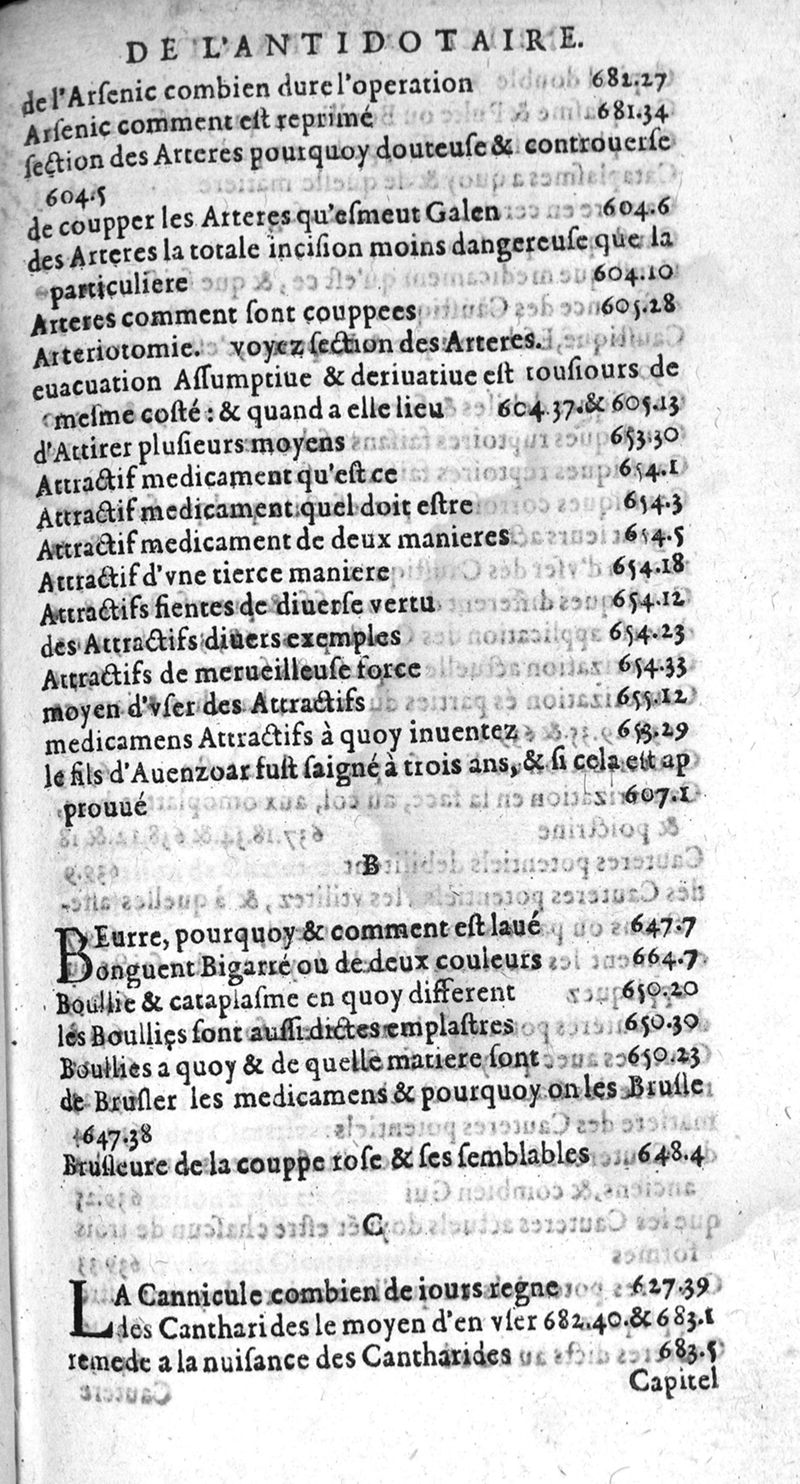 DE L'ANTIDOTAIRE.
de l'Arſenic combien dure l'operation 682.27
Arſenic comment eſt reprimé 681.34
ſection des Arteres pourquoy douteuſe & controuerſe
604.5
de coupper les Arteres qu'eſmeut Galen 604.6
des Arteres la totale inciſion moins dangereuſe que la
particuliere 604.10
Arteres comment ſont couppees 605.28
Arteriotomie. voyez ſection des Arteres.
euacuation Aſſumptiue & deriuatiue eſt touſiours de
meſme coſté : & quand a elle lieu 604.37.& 605.13
d'Attirer pluſieurs moyens 653.30
Attractif medicament qu'eſt ce 654.1
Attractif medicament quel doit eſtre 654.3
Attractif medicament de deux manieres 654.5
Attractif d'vne tierce maniere 654.18
Attractifs fientes de diuerſe vertu 654.12
des Attractifs diuers exemples 654.23
Attractifs de merueilleuſe force 654.33
moyen d'vſer des Attractifs 655.12
medicamens Attractifs à quoy inuentez 653.29
le fils d'Auenzoar fuſt ſaigné à trois ans, & ſi cela eſt ap
prouué 607.1
B
BEurre, pourquoy & comment eſt laué 647.7
onguent Bigarré ou de deux couleurs 664.7
Boullie & cataplaſme en quoy different 650.20
les Boullies ſont auſſi dictes emplaſtres 650.30
Boullies a quoy & de quelle matiere ſont 650.23
de Bruſler les medicamens & pourquoy on les Bruſle
647.38
Bruſleure de la couppe roſe & ſes ſemblables 648.4
C
LA Cannicule combien de iours regne 627.39
des Cantharides le moyen d'en vſer 682.40.& 683.1
remede a la nuiſance des Cantharides 683.5
Capitel